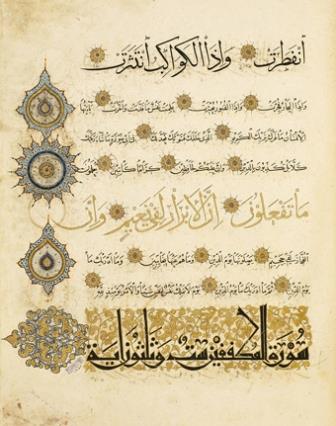 انفطرت وإذا الكواكب انتثرت
وإذا البحار فجرت وإذا القبور بعثرت علمت نفس ما قدمت وأخرت يا أيها
الإنسان ما غرك بربك الكريم الذي خلقك فسويك فعدلك في أي صورة ما شاء ركبك
كلا بل تكذبون بالدين وإن عليكم لحافظين كراما كاتبين يعلمون
ما تفعلون إن الأبرار لفي نعيم وإن
الفجار لفي جحيم يصلونها يوم الدين وما هم عنها بغائبين وما أدريك ما
يوم الدين ثم ما أدريك ما يوم الدين يوم لا تملك نفس لنفس شيئا والأمر يومئذ لله
سورة المطففين ست وثلثون آية